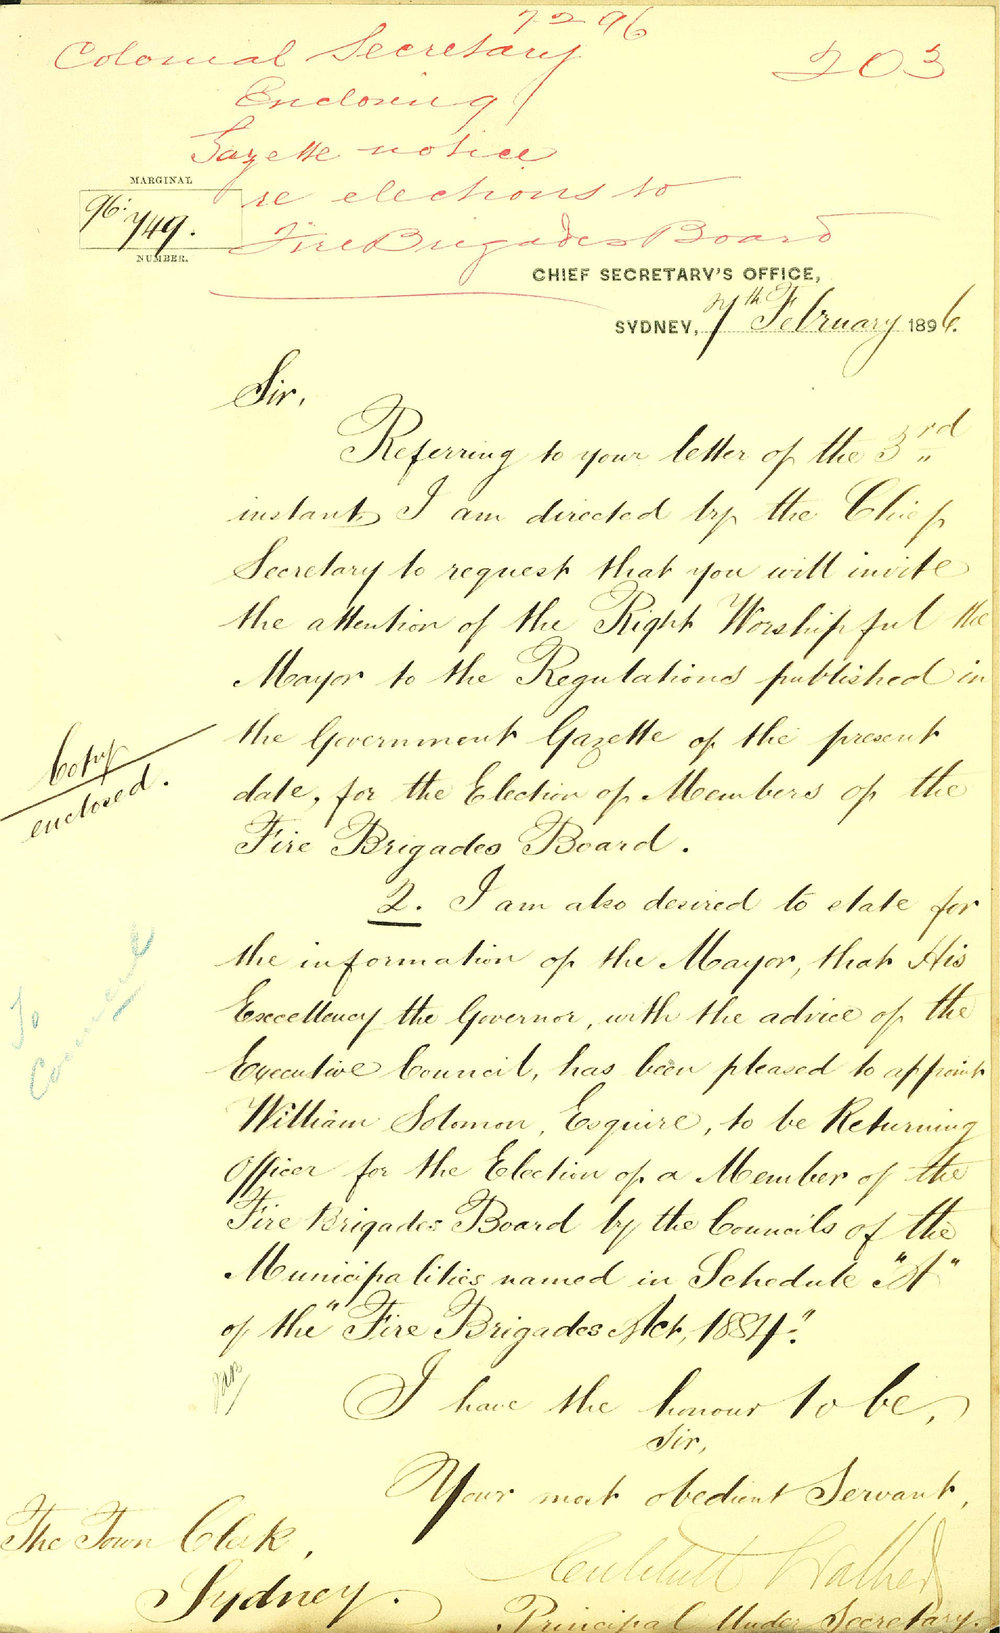 7 2 96
203
Colonial Secretary
Enclosing
Gazette notice
re elections to
Fire Brigades Board
MARGINAL
96:
749.
NUMBER.
CHIEF SECRETARY'S OFFICE,
SYDNEY, 7th February 1896.
Sir,
Referring to your letter of the 3rd
instant, I am directed by the Chief
Secretary to request that you will invite
the attention of the Right Worshipful the
Mayor to the Regulations published in
the Government Gazette of the present
date, for the Election of Members of the
Fire Brigades Board.
Copy
enclosed.
2. I am also desired to state for
the information of the Mayor, that His
Excellency the Governor, with the advice of the
Executive Council, has been pleased to appoint
William Solomon, Esquire, to be Returning
Officer for the Election of a Member of the
Fire Brigades Board by the Councils of the
Municipalities named in Schedule "A"
of the "Fire Brigades Act, 1884."
To
Council
I have the honour to be,
Sir,
Your most obedient Servant,
Critchett Walker
Principal Under Secretary.
The Town Clerk,
Sydney.